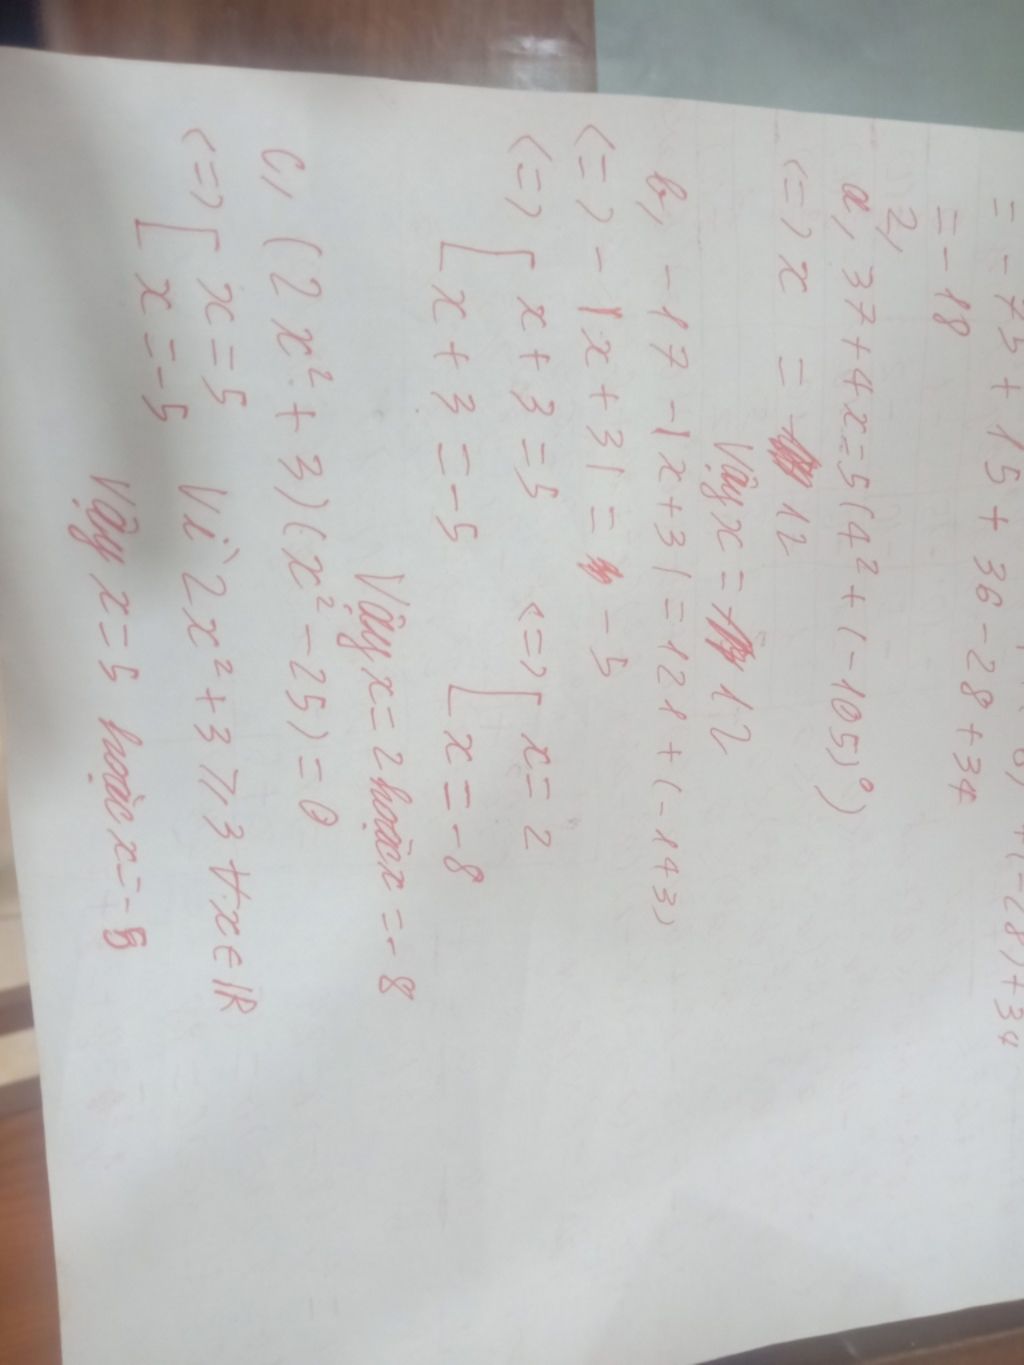 = -75 + 15 + 36 - 28 + 34
= -18
2,
a, 37 + 4x = 5(4² + (-105)⁰)
<=> x = 12
Vậy x = 12
b, -17 - |x + 3| = 121 + (-143)
<=> - |x + 3| = -5
<=> [ x + 3 = 5 <=> [ x = 2
[ x + 3 = -5 [ x = -8
Vậy x = 2 hoặc x = -8
c, (2x² + 3)(x² - 25) = 0
<=> [ x = 5 Vì 2x² + 3 ⩾ 3 ∀x ∈ ℝ
[ x = -5
Vậy x = 5 hoặc x = -5